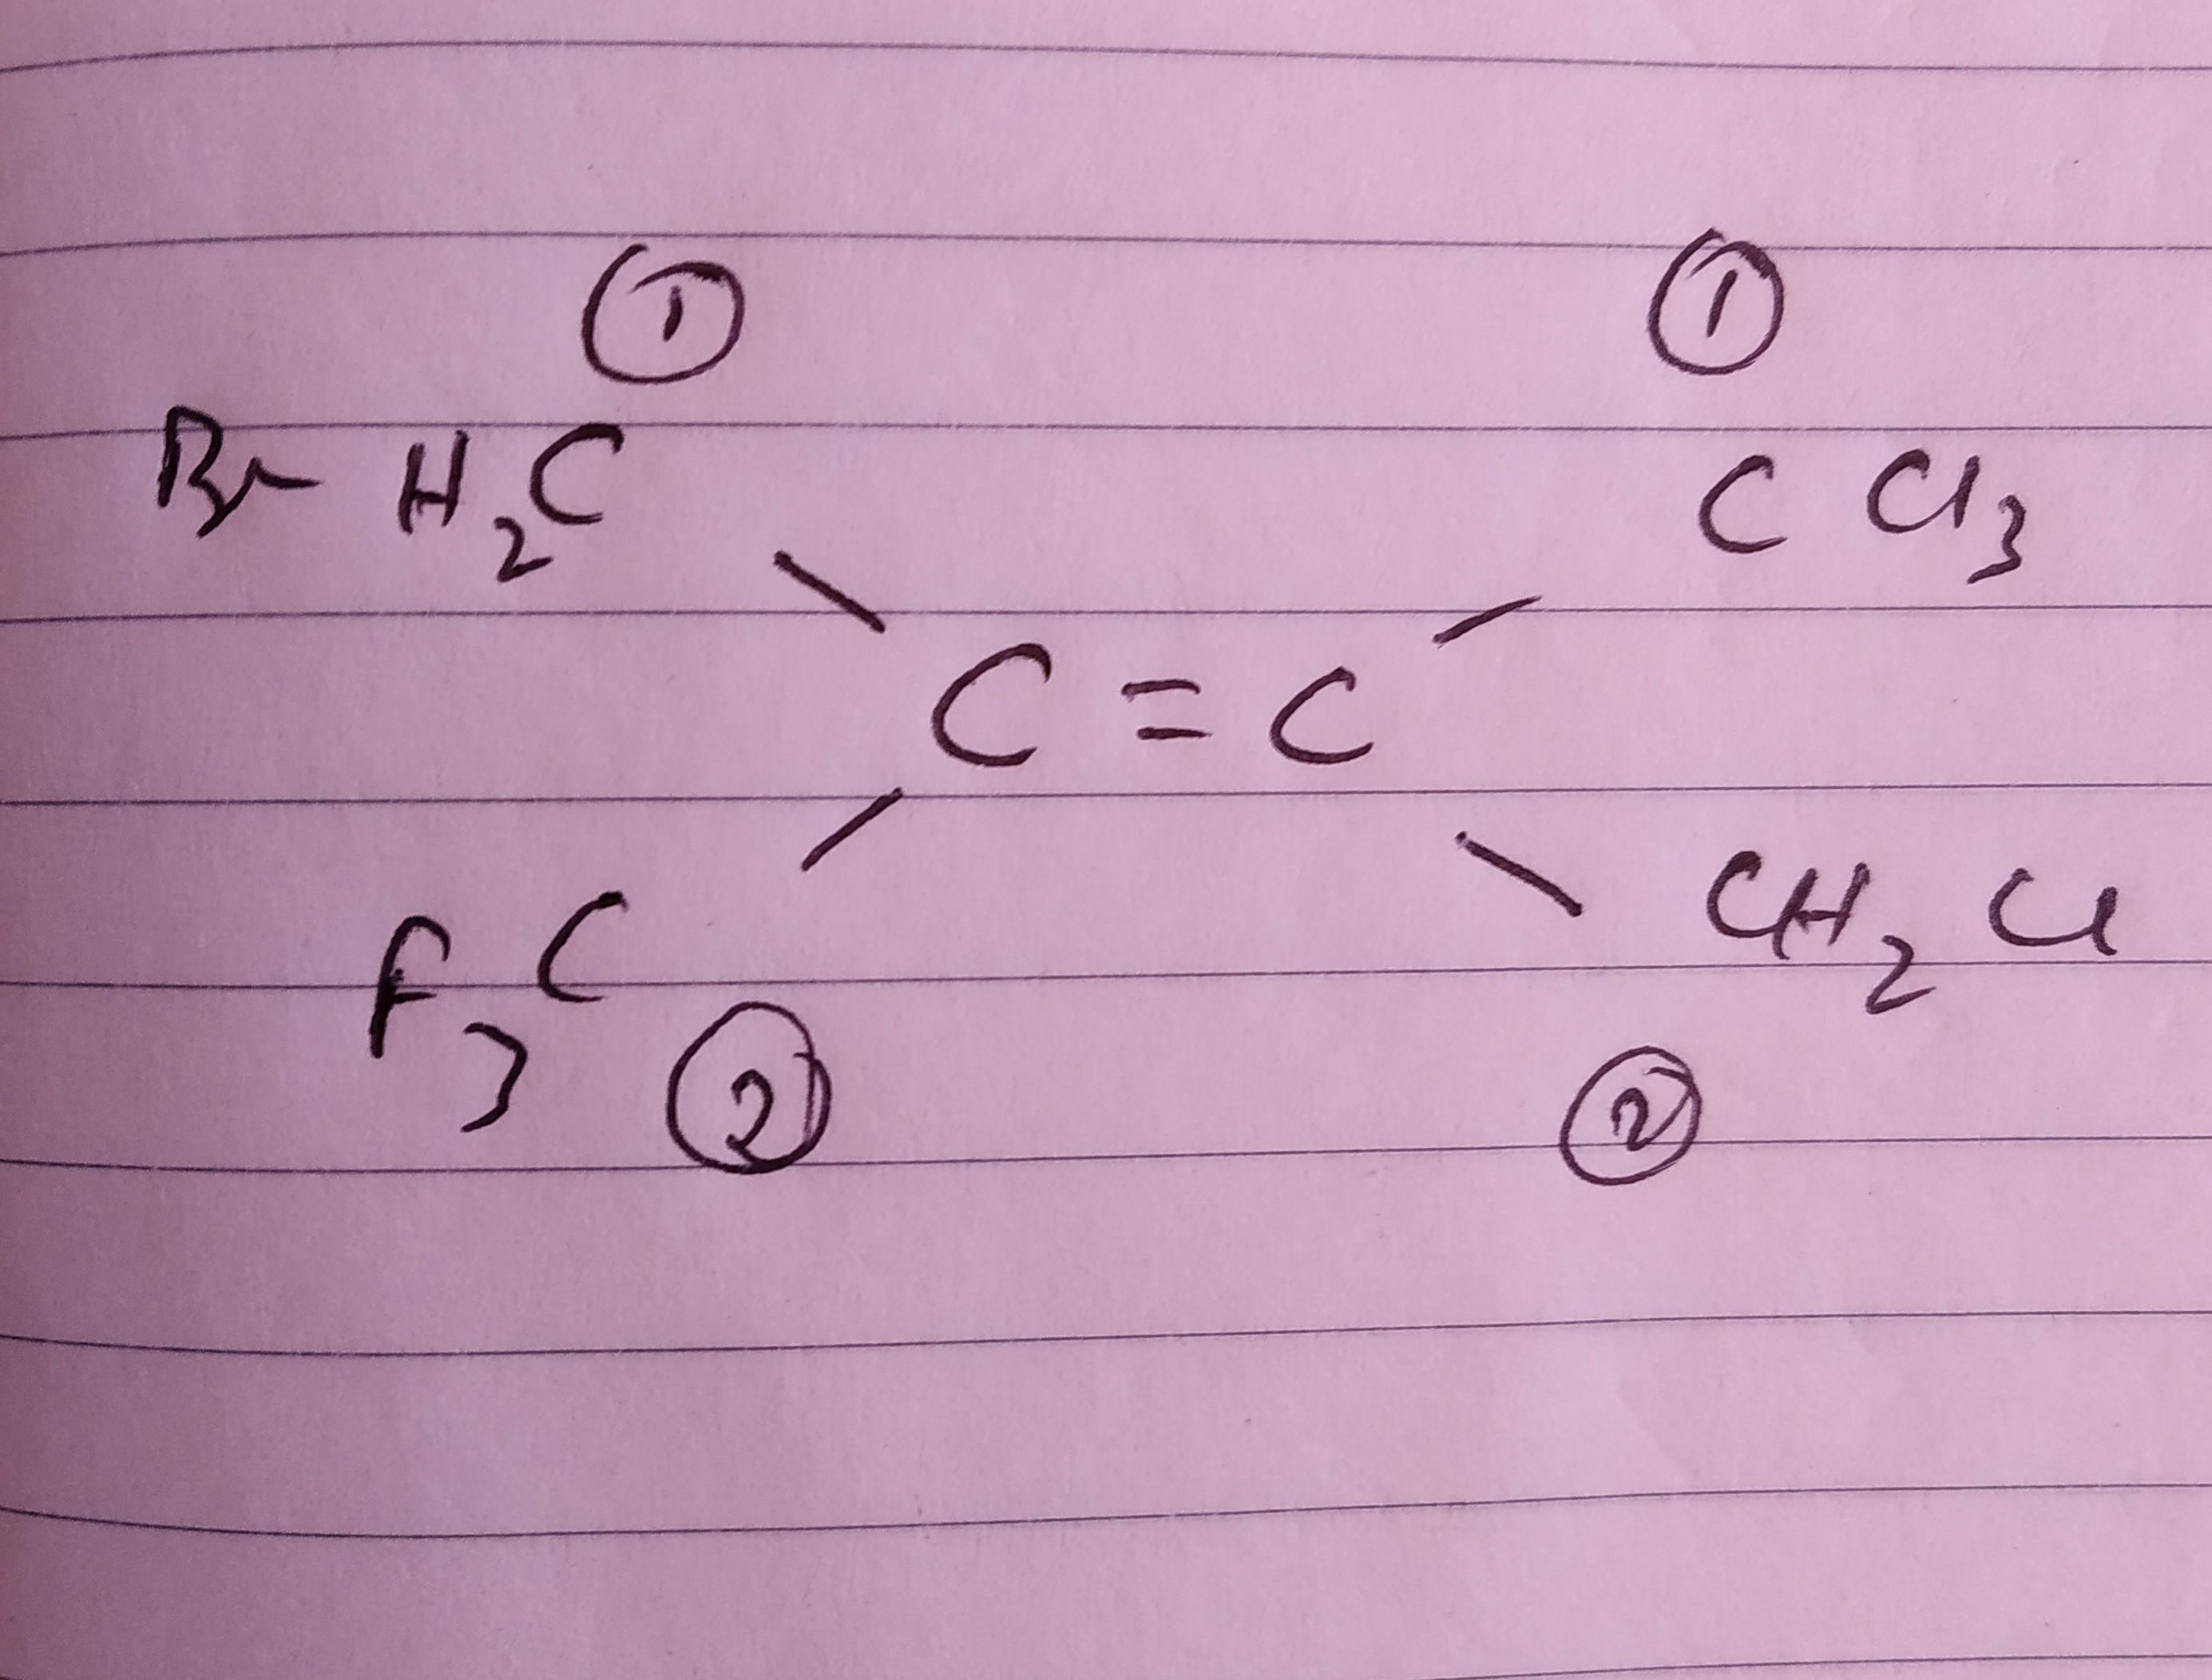 ① ①
BrH₂C CCl₃
C = C
F₃C CH₂Cl
② ②